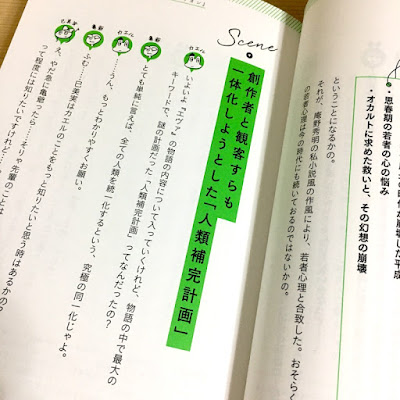 崩壊した平成
・思春期の若者の心の悩み
・オカルトに求めた救いと、その幻想の崩壊
ということになるかの。
それが、庵野秀明の私小説風の作風により、若者心理と合致した。おそらく
の若者心理は今の時代にも続いておるのではないかの。
Scene
創作者と観客すらも
一体化しようとした「人類補完計画」
カエル
いよいよ『エヴァ』の物語の内容について入っていくけれど、物語の中で最大の
キーワードで、謎の計画だった「人類補完計画」ってなんだったの？
亀爺
とても単純に言えば、全ての人類を統一化するという、究極の同一化じゃよ。
カエル
……うん、もっとわかりやすくお願い。
亀爺
ふむ……美実はカエルのことをもっと知りたいと思う時はあるかの？
え、やだ急に亀爺ったら……そりゃ先輩のことは
って程度には知りたいですけれど